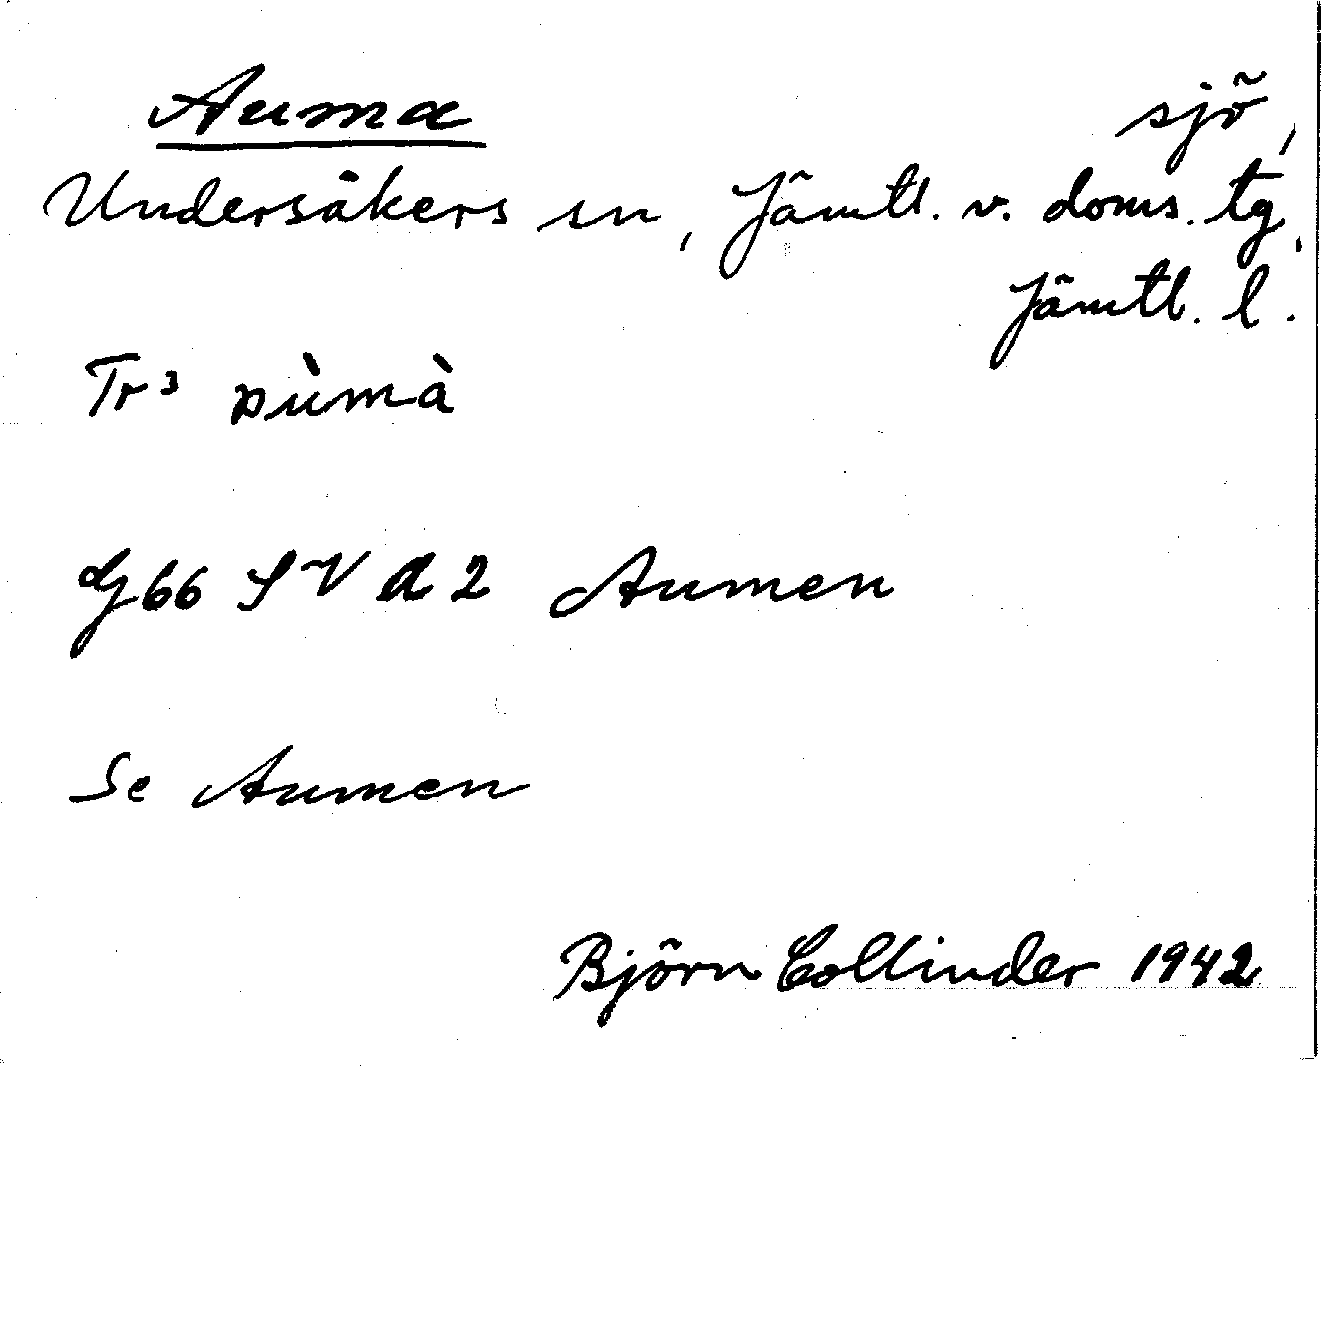 Auma sjö,
Undersåkers sn, Jämtl. v. doms. tg,
Jämtl. l.
Tr³
G66 SV d2 Aumen
Se Aumen
Björn Collinder 1942